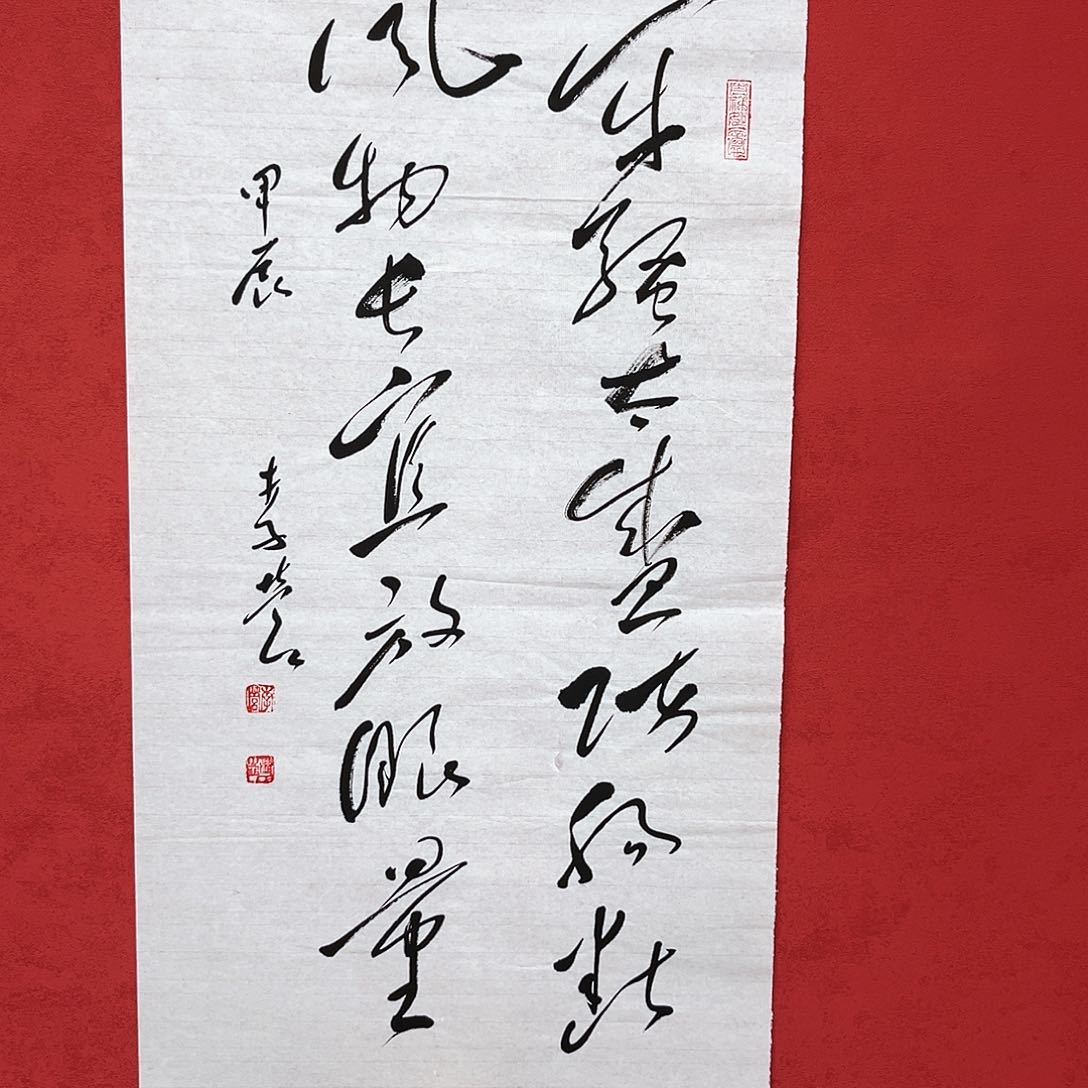 牢骚太盛防肠断
风物长宜放眼量
甲辰 李